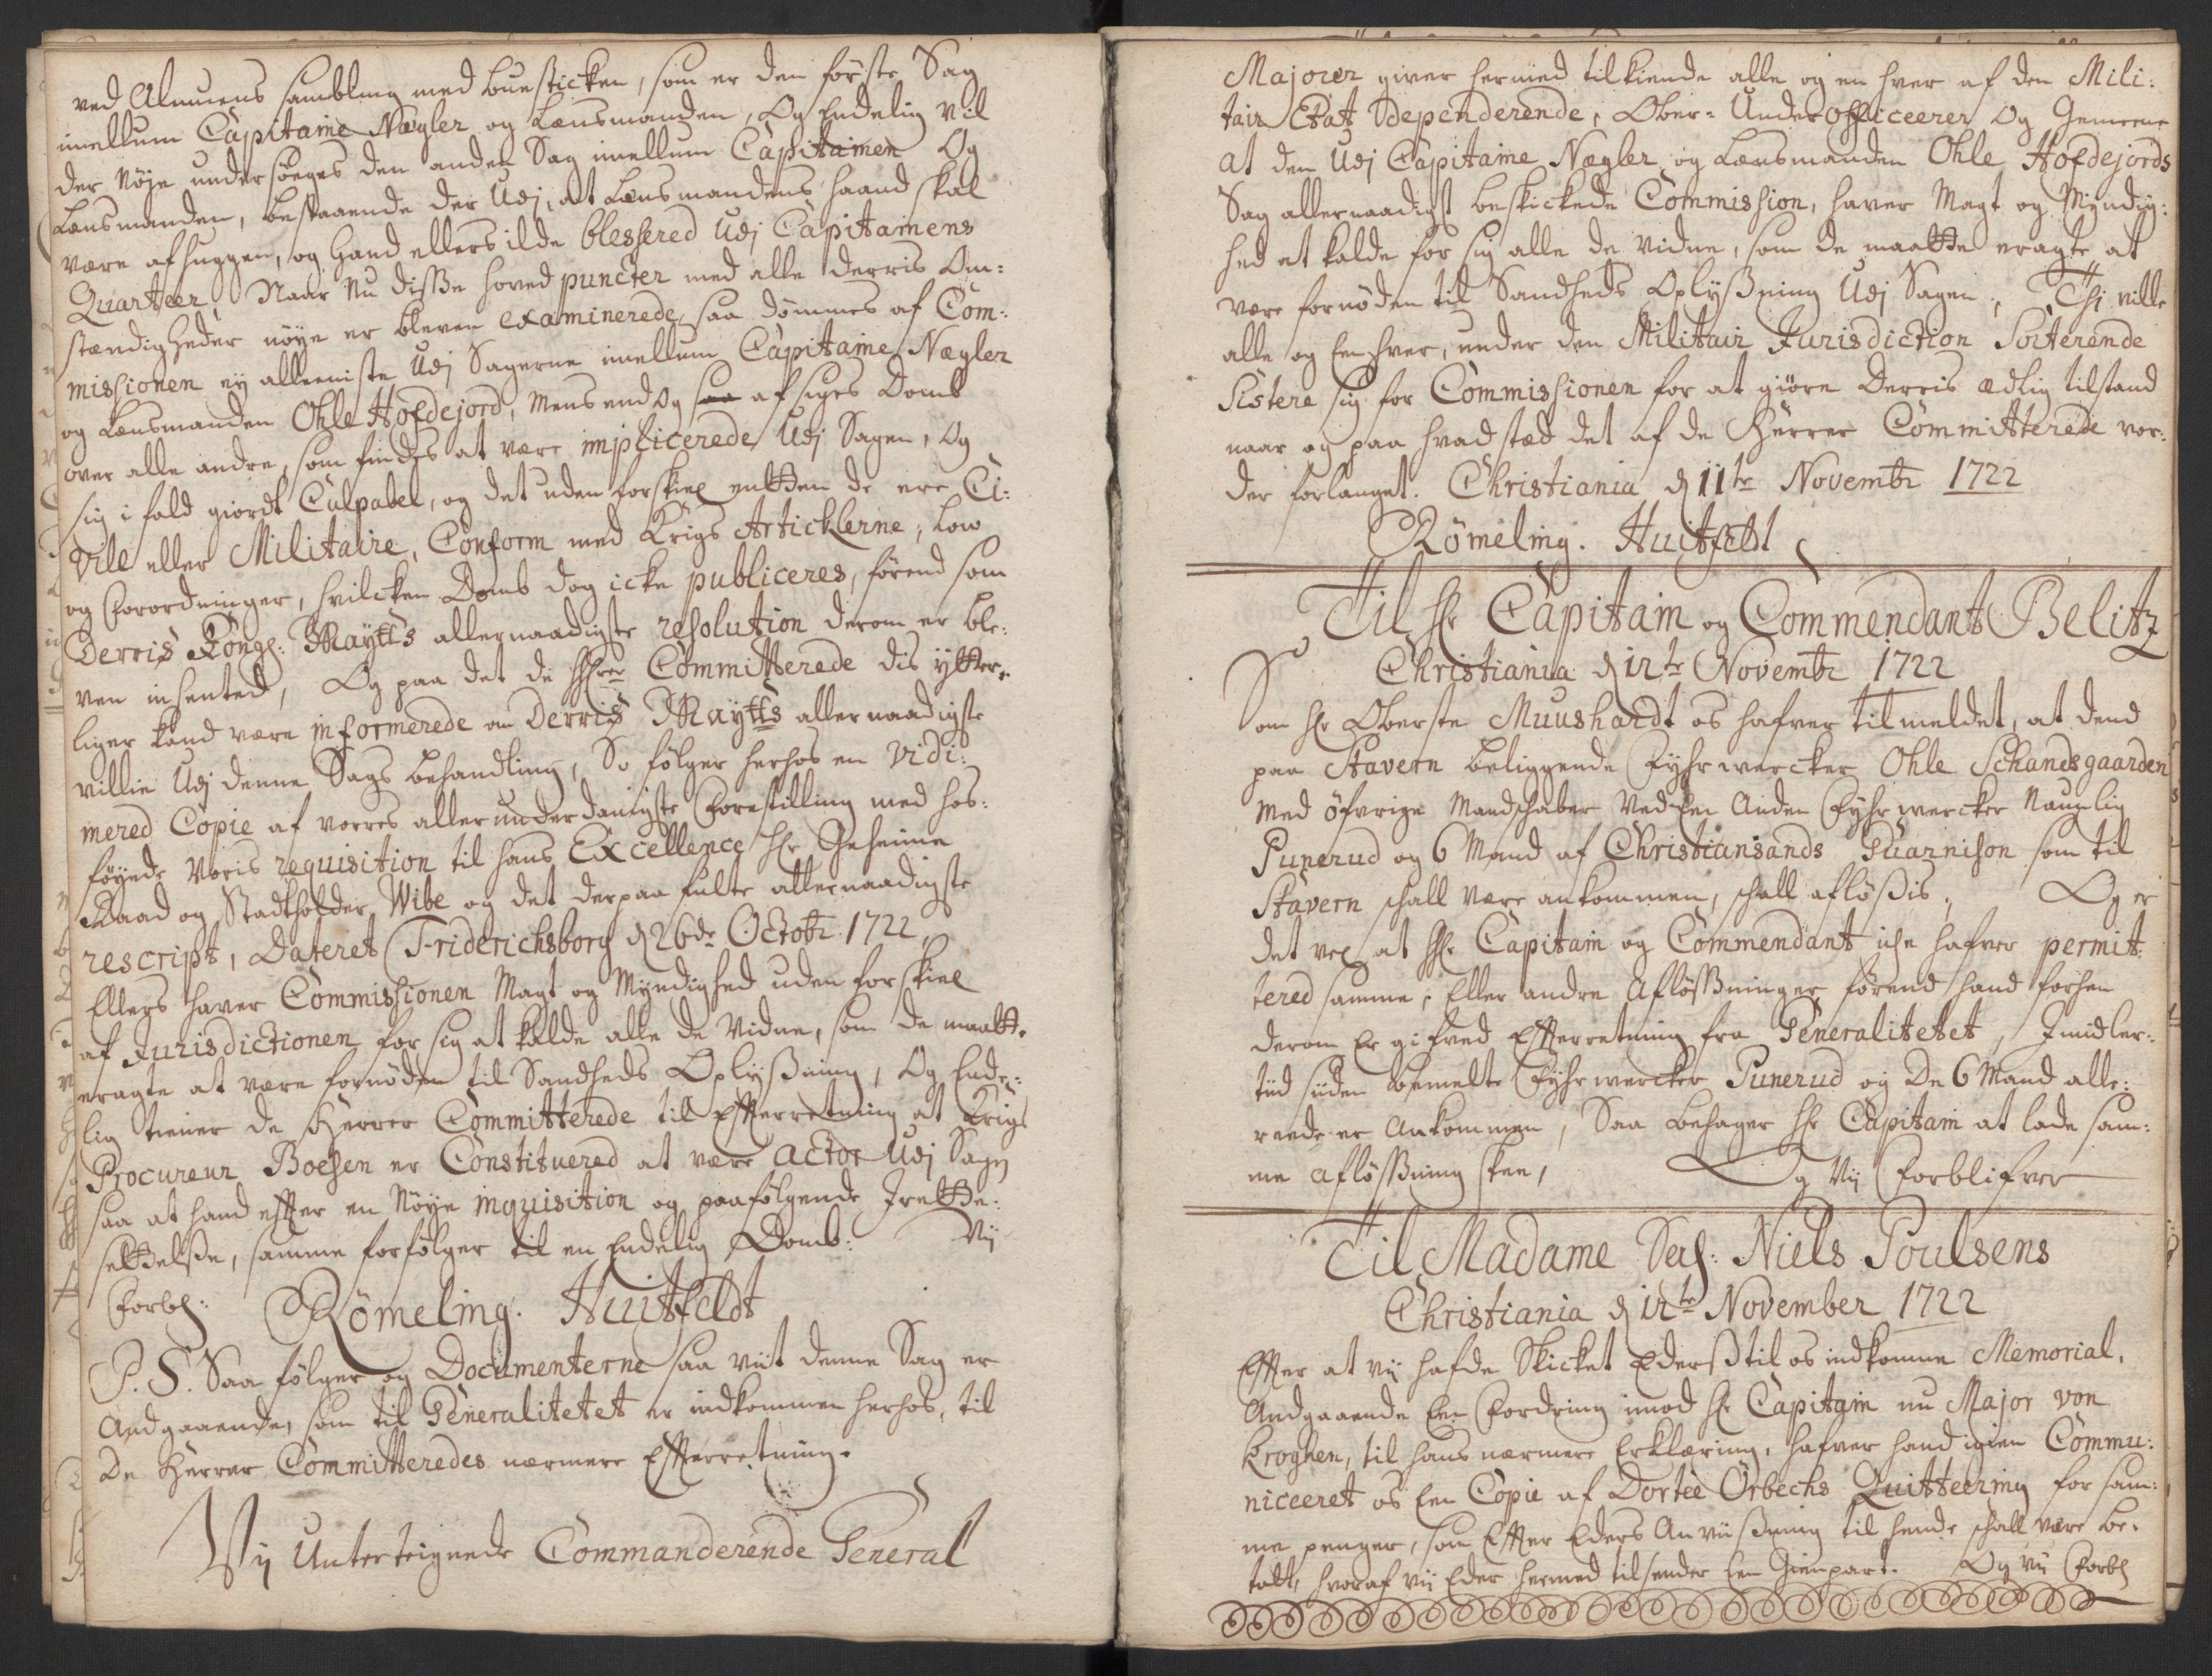 ved Almuens sambling med budsticken, som er den förste Sag
imellum Capitaine Nægler og Lensmanden, Og Endelig vil
der Nöje undersöges den anden Sag imellum Capitainen Og
Lensmanden, bestaaende der Udj, at Lensmandens haand skal
være afhuggen, og hand ellers ilde blessered Udj Capitainens
Quarteer. Naar Nu disse hoved puncter med alle derris Om-
stændigheder nöye er bleven examinerede, saa dömmes af Com:
missionen ey alleeniste Udj Sagerne imellum Capitaine Nægler
og Lensmanden Ohle Hofdejord, Mens end og saa afsiges Domb
over alle andre, som findes at være implicerede Udj Sagen, Og
sig i fald giordt Culpabel, og det uden forskiel enten de ere Ci:
vile eller Militaire, Conform med Krigs Articklerne, Low
og Forordninger, hvilcken Domb dog icke publiceres, förend som
Derris Kongl: Maytts allernaadigste resolution derom er ble:
ven insented, Og paa det de Hrer Committerede dis ytter-
liger kand være informerede om Derris Maytts allernaadigste
villie Udj denne Sags behandling, So fölger herhos en vidi:
mered Copie af vorres allerunderdanigste Forestilling med hos:
föyede Voris requisition til hans Excellence Hr Geheime
Raad og Stadtholder Wibe og det derpaa fulte allernaadigste
rescript, Dateret Friderichsborg d 26de Octobr 1722,
Ellers haver Commissionen Magt og Myndighed uden forskiel
af Jurisdictionen for sig at kalde alle de Vidne, som de maatte
eragte at være fornöden til Sandheds Oplysning, Og Ende:
lig tiener de Herrer Committerede til Efterretning at Krigs
Procureur Boesen er Constituered at være Actor Udj Sagen
saa at hand efter en Nöye inquisition og paafölgende Irette:
settelse, samme forfölger til en Endelig Domb. Vij
Forbl: Römeling. Huitfeldt
P.S. Saa fölger og Documenterne saa vit denne Sag er
Andgaaende, som til Generalitetet er indkommen herhos, til
De Herrer Committeredes nærmere Efterretning.
Vij Unterteignede Commanderende General
Majorer giver hermed tilkiende alle og en hver af den Mili:
tair Etat dependerende, Ober- Under officeerer Og Gemeene
at den Udj Capitaine Nægler og Lensmanden Ohle Hofdejords
Sag allernaadigst beskickede Commission, haver Magt og Myndig:
hed at kalde for sig alle de Vidne, som de maatte eragte at
være fornöden til Sandheds Oplysning Udj Sagen, Thj ville
alle og Een hver, under den Militair Jurisdiction Sorterende
Sistere sig for Commissionen for at giöre Derris ædlig tilstand
naar og paa hvad stæd det af de Herrer Committerede vor:
der forlanget. Christiania d 11te Novembr 1722
Römeling. Huitfeldt
Til Hr Capitain og Commendant Belitz
Christiania d 12te Novembr 1722
Som Hr Oberste Muushardt os hafver tilmeldet, at dend
paa Stavern beliggende Fyhrwercker Ohle Schandsgaarden
Med öfvrige Mandschaber Ved Een Anden Fyhrwercker Naunlig
Punerud og 6 Mand af Christiansands Guarnison som til
Stavern schall være ankommen, schall aflösis, Og er
det vel at Hr Capitain og Commendant icke hafver permit:
tered samme, Eller andre Aflösninger, förend hand forhen
derom Er gifved Efterretning fra Generalitetet, Imidler:
tiid siden bemelte Fyhrwercker Punerud og De 6 Mand alle:
reede er Ankommen, Saa behager Hr Capitain at lade sam:
me Aflösning skee, Og Vij Forblifver
Til Madame Sal: Niels Poulsens
Christiania d 12te November 1722
Efter at vij hafde Skicket Eders til os indkomne Memorial,
Andgaaende Een Fordring imod Hr Capitain nu Major von
Kroghen, til hans nærmere Erklæring, hafver hand igien Commu:
niceeret os Een Copie af Dortee Orbechs Quitteering for sam:
me penger, som Efter Eders Anviisning til hende schall være be-
talt, hvoraf vij Eder hermed tilsender Een Gienpart. Og vij Forbl